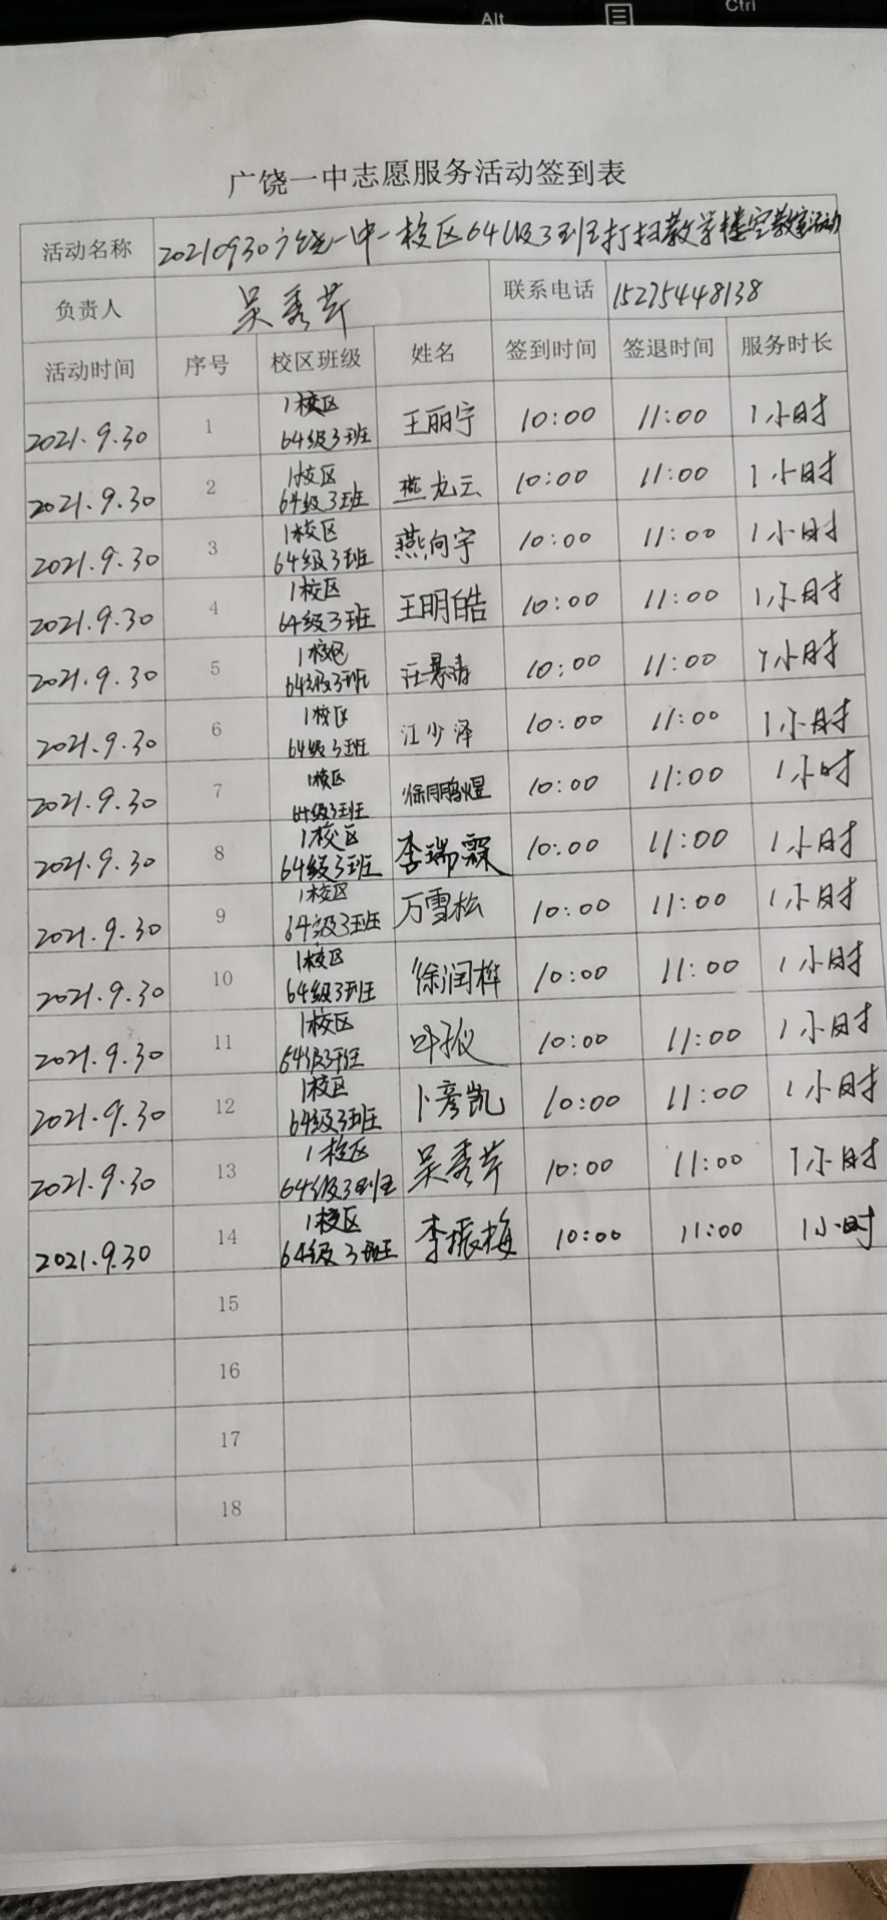 Alt
Ctrl
广饶一中志愿服务活动签到表
活动名称 20210930广饶一中一校区64级3班打扫教学楼空教室活动
负责人 吴秀芹 联系电话 15275448138
活动时间 序号 校区班级 姓名 签到时间 签退时间 服务时长
2021.9.30 1 1校区 64级3班 王丽宁 10:00 11:00 1小时
2021.9.30 2 1校区 64级3班 燕龙云 10:00 11:00 1小时
2021.9.30 3 1校区 64级3班 燕向宇 10:00 11:00 1小时
2021.9.30 4 1校区 64级3班 王明皓 10:00 11:00 1小时
2021.9.30 5 1校区 64级3班 10:00 11:00 1小时
2021.9.30 6 1校区 64级3班 江少泽 10:00 11:00 1小时
2021.9.30 7 1校区 64级3班 徐鹏煜 10:00 11:00 1小时
2021.9.30 8 1校区 64级3班 李瑞霖 10:00 11:00 1小时
2021.9.30 9 1校区 64级3班 万雪松 10:00 11:00 1小时
2021.9.30 10 1校区 64级3班 徐润桦 10:00 11:00 1小时
2021.9.30 11 1校区 64级3班 叶子仪 10:00 11:00 1小时
2021.9.30 12 1校区 64级3班 卜彦凯 10:00 11:00 1小时
2021.9.30 13 1校区 64级3班 吴秀芹 10:00 11:00 1小时
2021.9.30 14 1校区 64级3班 李振梅 10:00 11:00 1小时
15
16
17
18